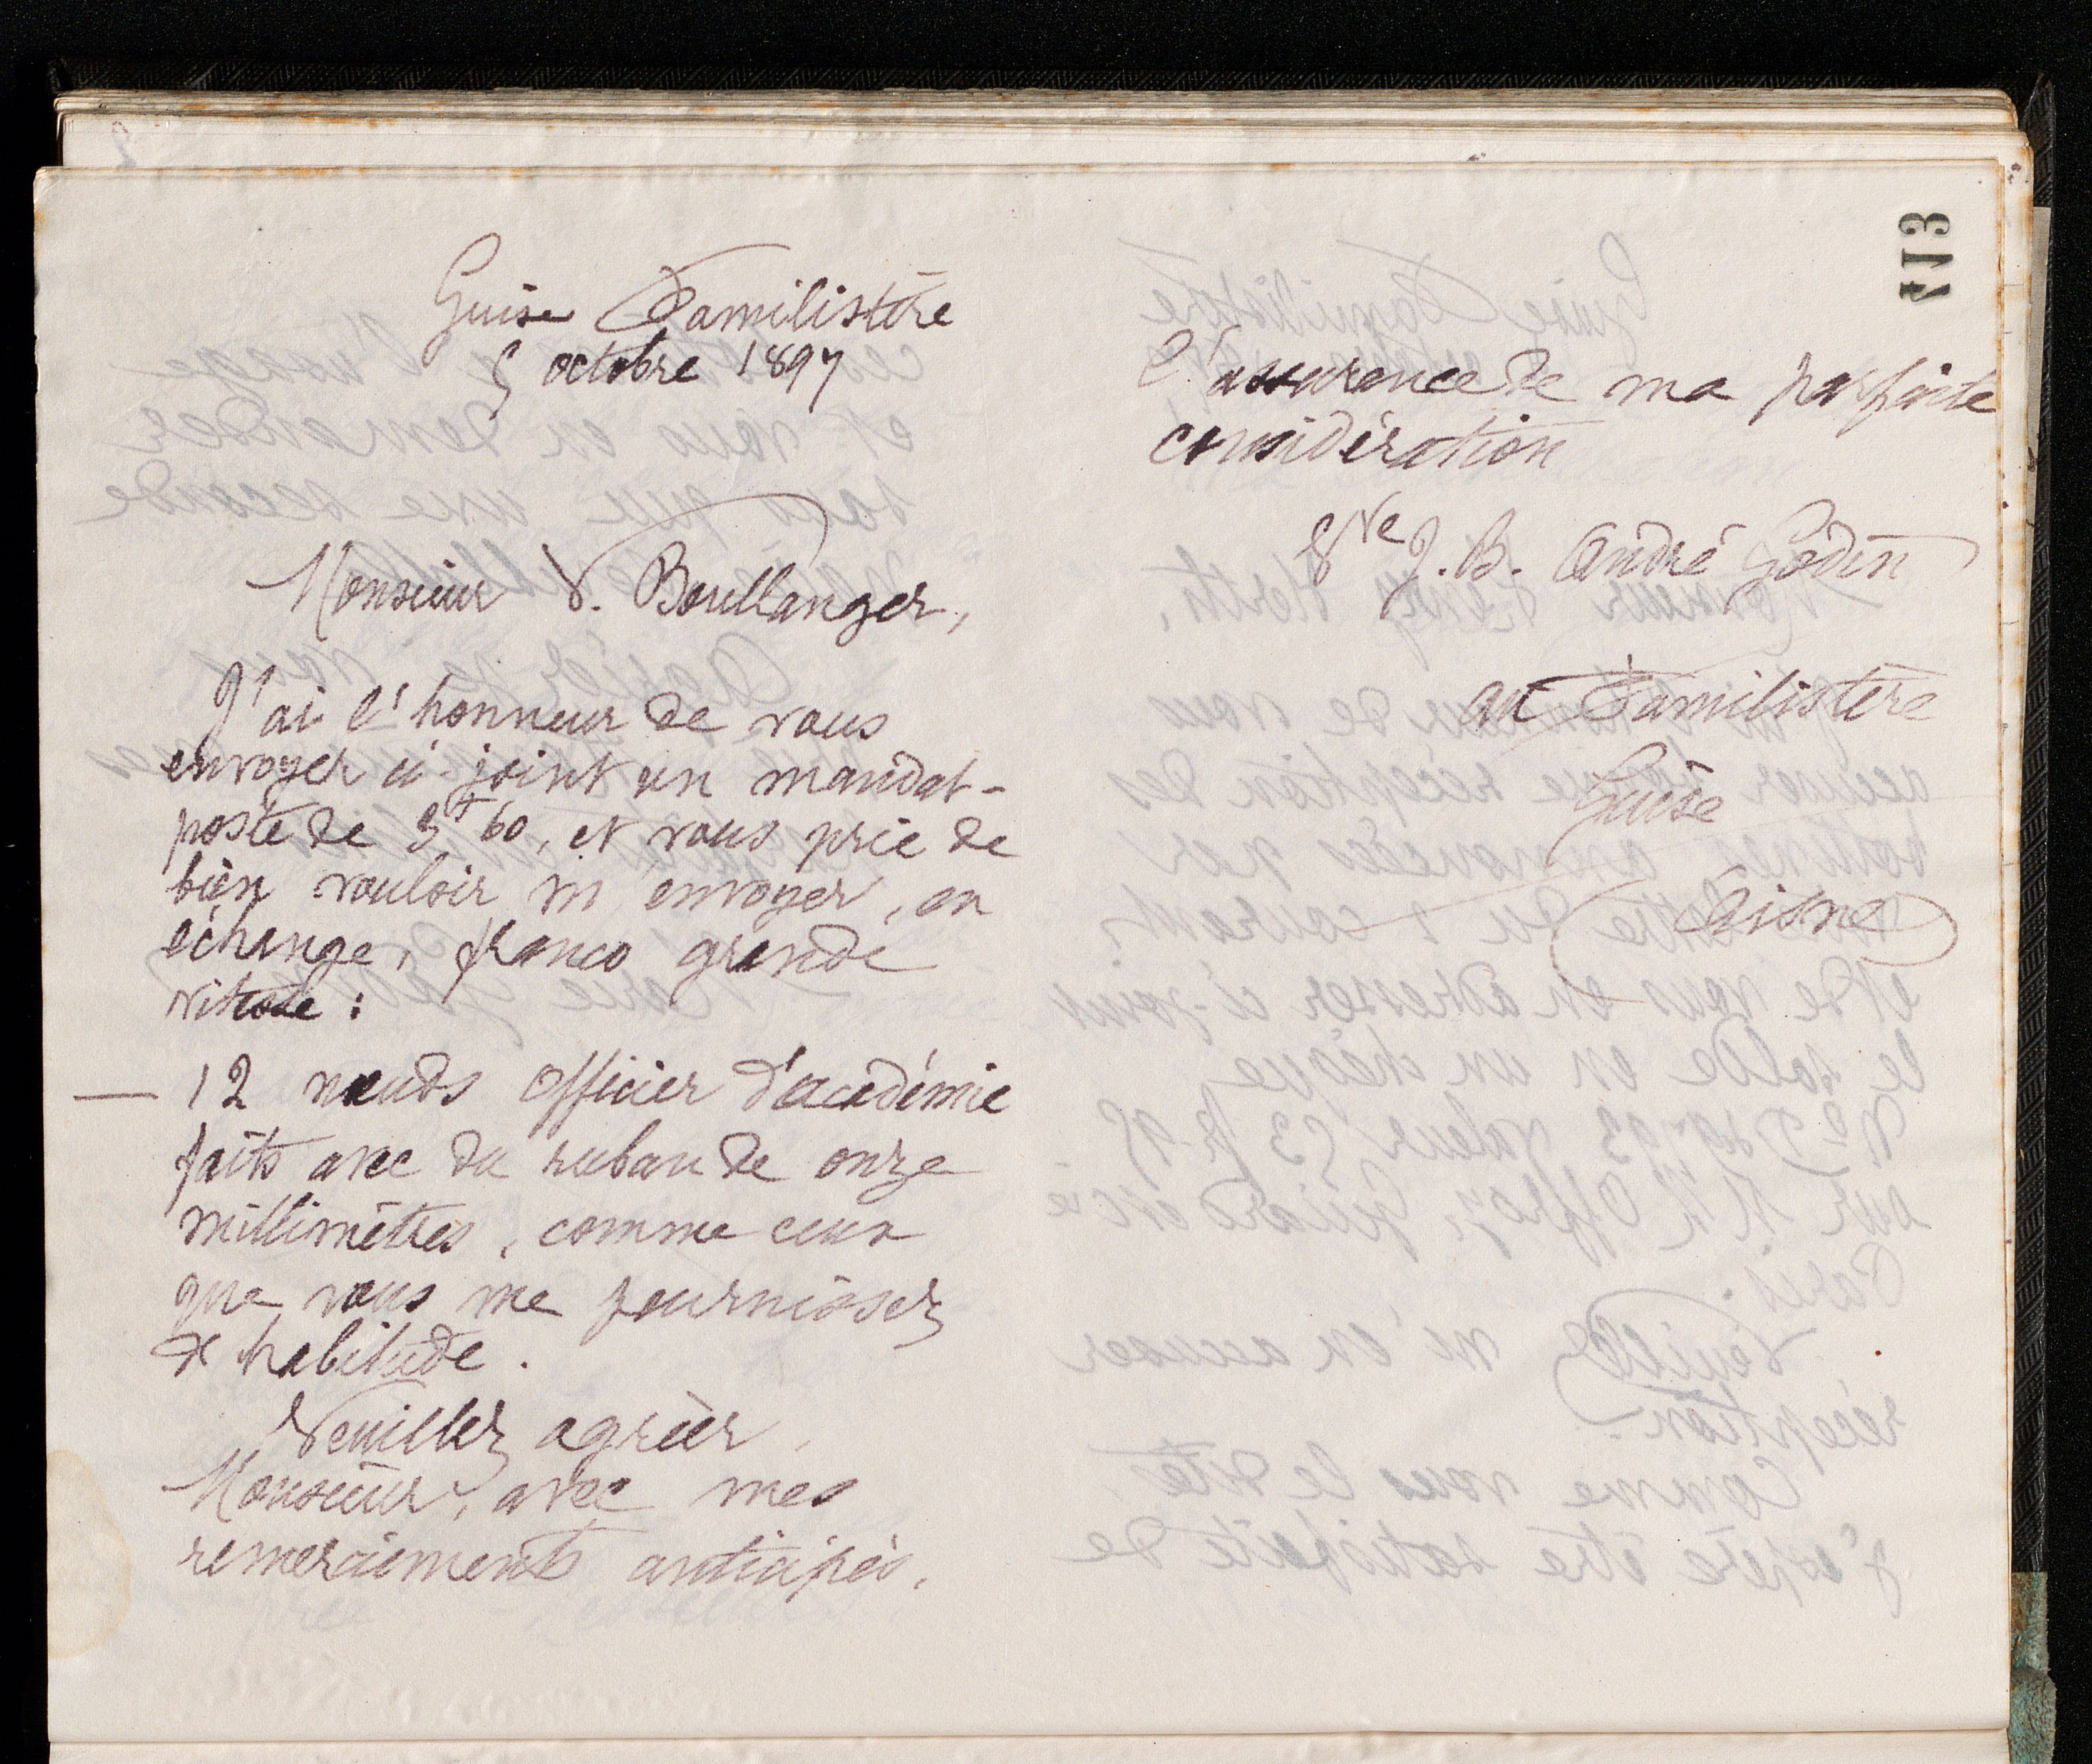 Guise Familistère
5 octobre 1897
Monsieur V. Boullanger,
J'ai l'honneur de vous
envoyer ci-joint un mandat-
poste de 3f 60, et vous prie de
bien vouloir m'envoyer, en
échange, franco grande
vitesse :
— 12 nœuds officier d'académie
faits avec du ruban de onze
millimètres, comme ceux
que vous me fournissez
d'habitude.
Veuillez agréer,
Monsieur, avec mes
remerciements anticipés,
113
l'assurance de ma parfaite
considération
Vve J. B. André Godin
au Familistère
Guise
Aisne